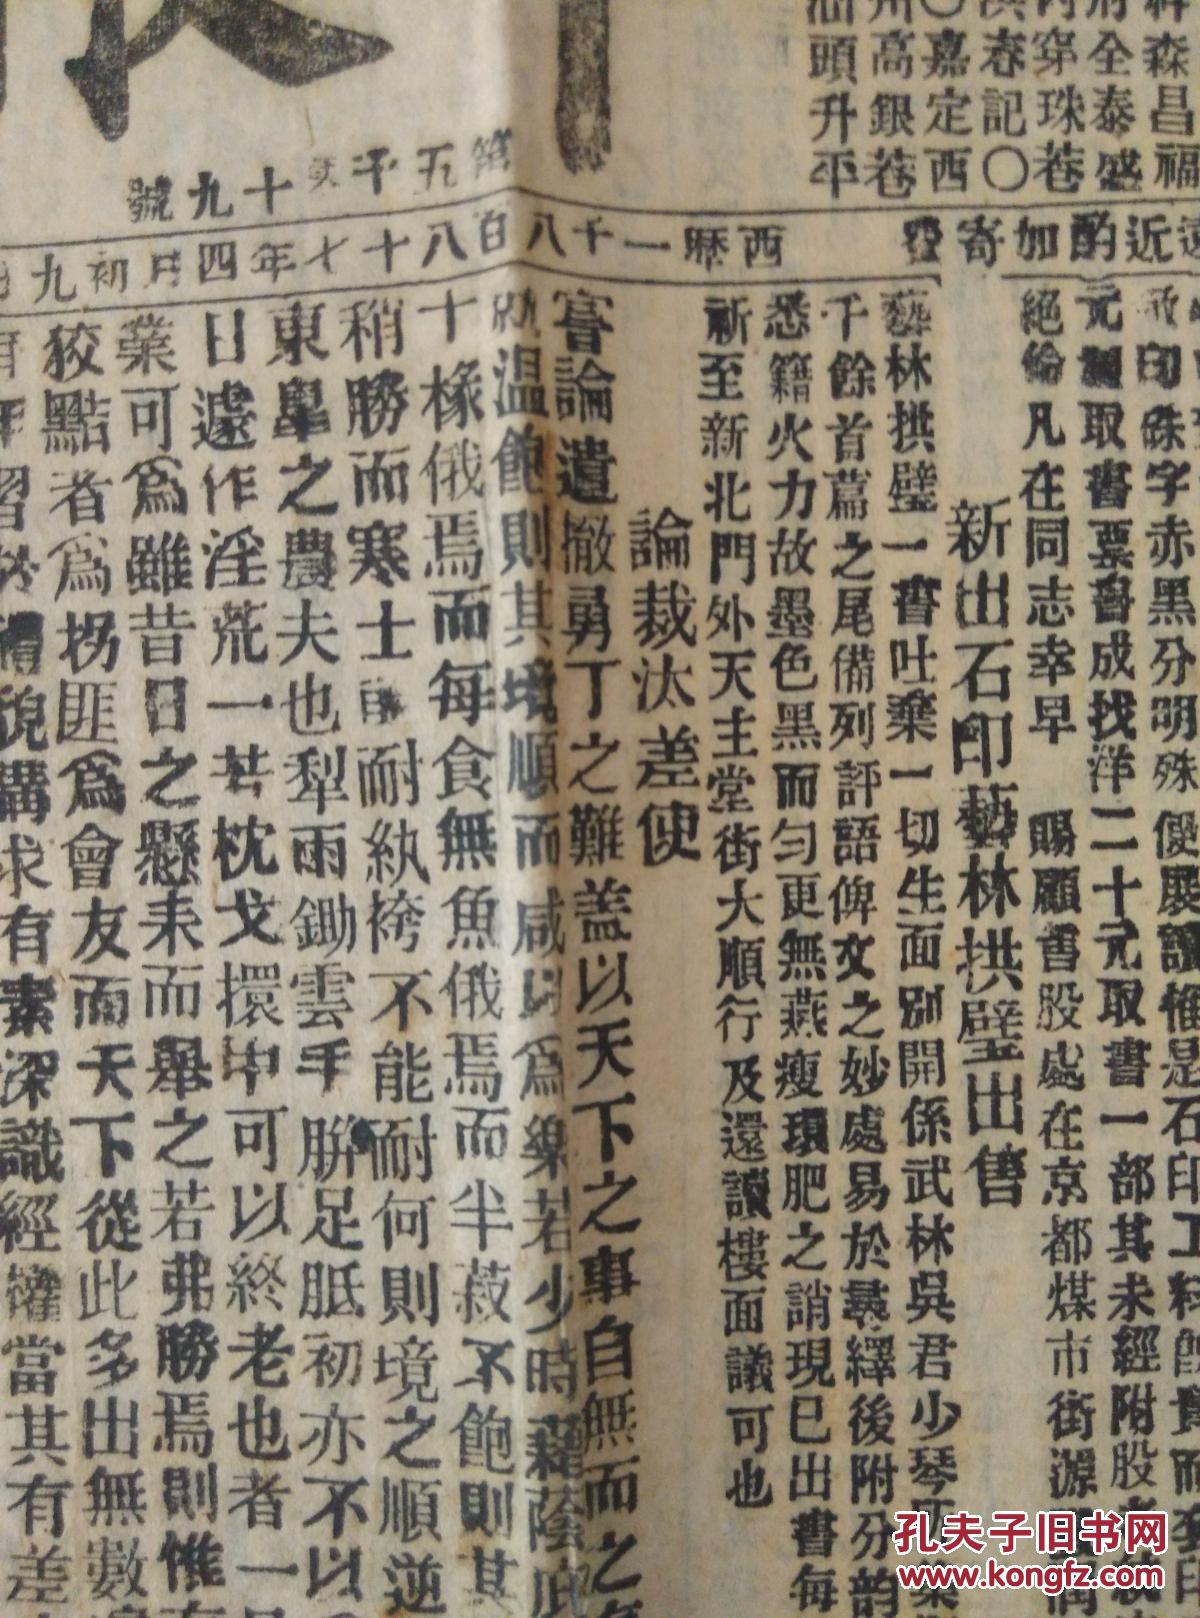 祥森昌福
府全泰盛
內穿珠巷
漢春記〇
〇嘉定西
州高銀巷
汕頭升平
近酌加寄
第五千 十九號
西曆一千八百八十七年四月初九
印硃字赤黑分明殊便展讀惟是石印工
元 取書票書成找洋二十元取書一部其未經附股者
絕倫凡在同志幸早 賜顧書股處在京都煤市街源
新出石印藝林拱璧出售
藝林拱璧一書吐棄一切生面別開係武林吳君少琴
千餘首篇之尾備列評語俾文之妙處易於尋繹後附分韵
悉籍火力故墨色黑而匀更無燕瘦環肥之誚現已出書每
祈至新北門外天主堂街大順行及還讀樓面議可也
論裁汰差使
嘗論遣撤勇丁之難蓋以天下之事自無而之
溫飽則其境順而咸以為樂若少時藉蔭
十椽俄焉而每食無魚俄焉而半菽不飽則其
稍勝而寒士 耐紈袴不能耐何則境之順逆
東皐之農夫也犁雨鋤雲手胼足胝初亦不以
日遽作淫荒一若枕戈擐甲可以終老也者一
業可為雖昔日之懸耒而舉之若弗勝焉則惟
狡黠者為拐匪為會友而天下從此多出無數
習於禮貌講求有素深識經權當其有差
孔夫子旧书网
www.kongfz.com